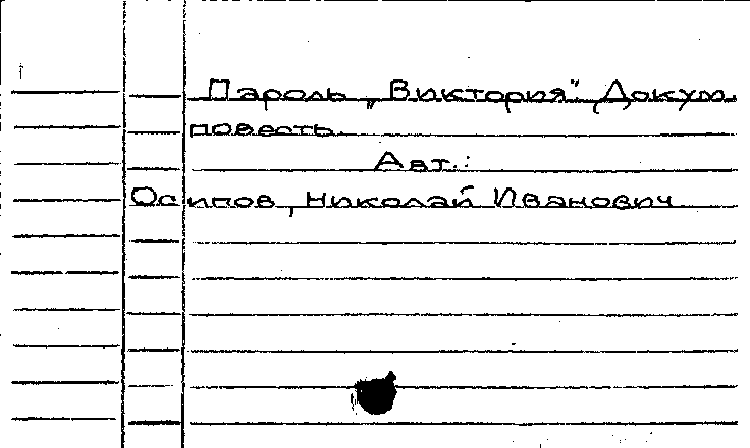 Пароль „Виктория" Докум.
повесть.
Авт.:
Осипов, Николай Иванович